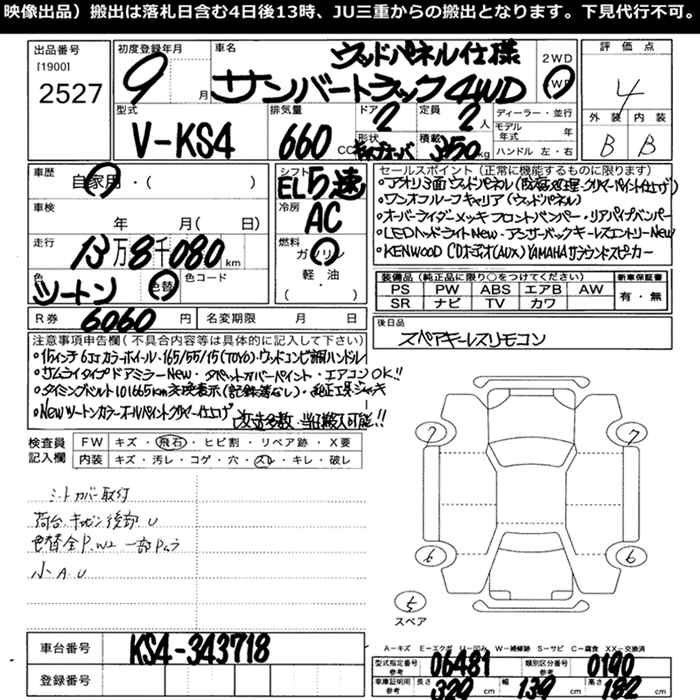 映像出品）搬出は落札日含む4日後13時、JU三重からの搬出となります。下見代行不可。
出品番号
[1900]
2527
初度登録年月
9 月
車名
ウッドパネル仕様
サンバートラック 4WD
2WD
4WD
評価点
4
外装 内装
B B
型式
V-KS4
排気量
660 CC
ドア
2
形状
定員
2 人
積載
350 kg
ディーラー・並行
モデル年式 年
ハンドル 左・右
車歴
自家用・( )
車検
年 月( 日)
走行
13万8千080 km
色
ツートン
色替
色コード
シフト
EL5速
冷房
AC
燃料
ガソリン
軽・油
( )
R券 6060 円
名変期限 月 日
セールスポイント（正常に機能するものに限ります）
・アオリ3面ウッドパネル(防腐処理・クリヤーペイント仕上げ)
・ワンオフルーフキャリア(ウッドパネル)
・オーバーライダーメッキフロントバンパー・リアパイプバンパー
・LEDヘッドライトNew・アンサーバックキーレスエントリーNew
・KENWOOD CDオーディオ(AUX) YAMAHAサラウンドスピーカー
装備品（純正品に限り○をつけてください）
PS PW ABS エアB AW
SR ナビ TV カワ
新車保証書
有・無
後日品
スペアキーレスリモコン
注意事項申告欄（不具合内容等は具体的に記入して下さい）
・15インチ6Jカラーホイール・165/55/15(TOYO)・ウッドコンビ調ハンドル
・サムライタイプドアミラーNew・タペットカバーペイント・エアコンOK!!
・タイミングベルト101665km交換表示(記録簿なし)・純正工具ジャッキ
・Newツートンカラーオールペイントクリヤー仕上げ
改造多数・当日搬入可能!!
検査員記入欄
FW キズ・飛石・ヒビ割・リペア跡・X要
内装 キズ・汚レ・コゲ・穴・スレ・キレ・破レ
シートカバー取付
荷台、キャビン後部U
色替全P、W2 一部Pムラ
小A、U
7 7
6 6
5
スペア
車台番号
KS4-343718
登録番号
A－キズ E－エクボ U－凹み W－補修跡 S－サビ C－腐食 XX－交換済
型式指定番号 参考
06481
類別区分番号 参考
0190
車庫証明用 参考
長さ 329 cm
幅 139 cm
高さ 182 cm